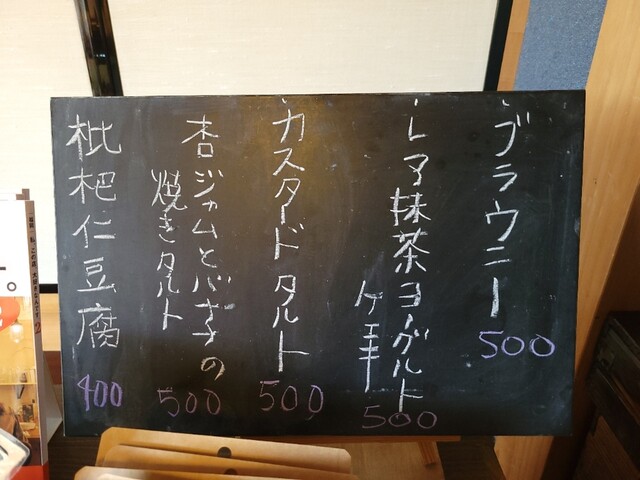 ブラウニー
500
レア抹茶ヨーグルト
ケーキ
500
カスタードタルト
500
杏ジャムとバナナの
焼きタルト
500
枇杷仁豆腐
400